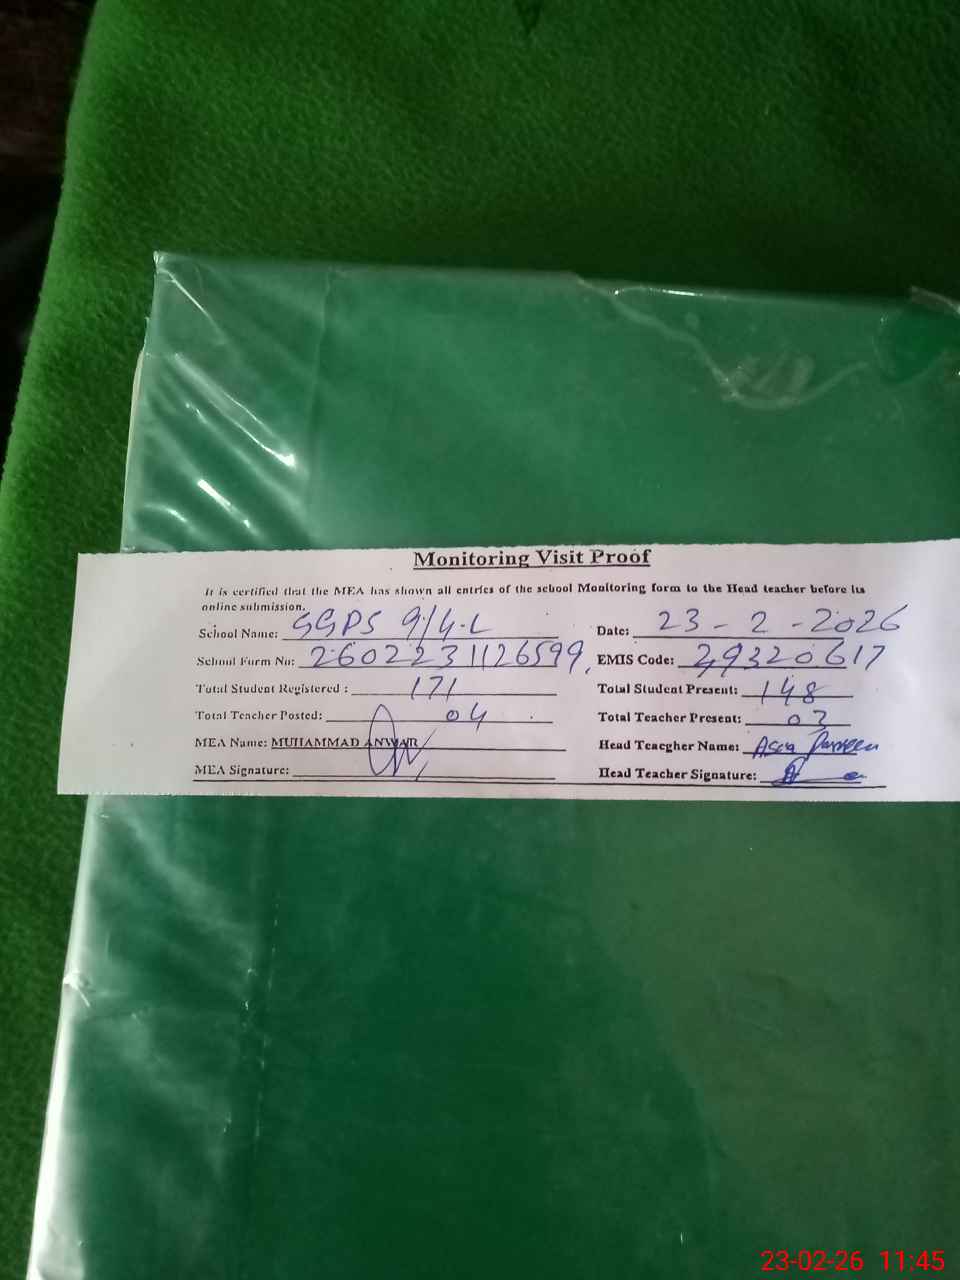 Monitoring Visit Proof
It is certified that the MEA has shown all entries of the school Monitoring form to the Head teacher before its
online submission.
School Name: GGPS 9/4-L Date: 23-2-2026
School Form No: 2602231126599, EMIS Code: 39320617
Total Student Registered : 171 Total Student Present: 148
Total Teacher Posted: 04 Total Teacher Present: 03
MEA Name: MUHAMMAD ANWAR Head Teacgher Name: Parveen
MEA Signature: Head Teacher Signature:
23-02-26 11:45